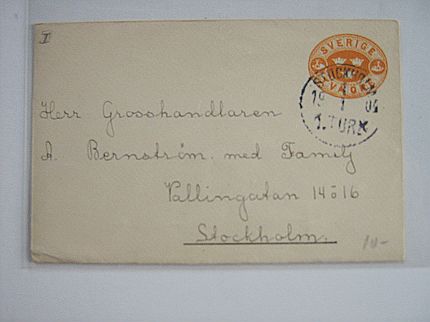 I
SVERIGE
FEM ÖRE
STOCKHOLM
1
19 1 04
1.TUR
Herr Grosshandlaren
A. Bernström. med Familj
Wallingatan 14 o 16
Stockholm.
10-